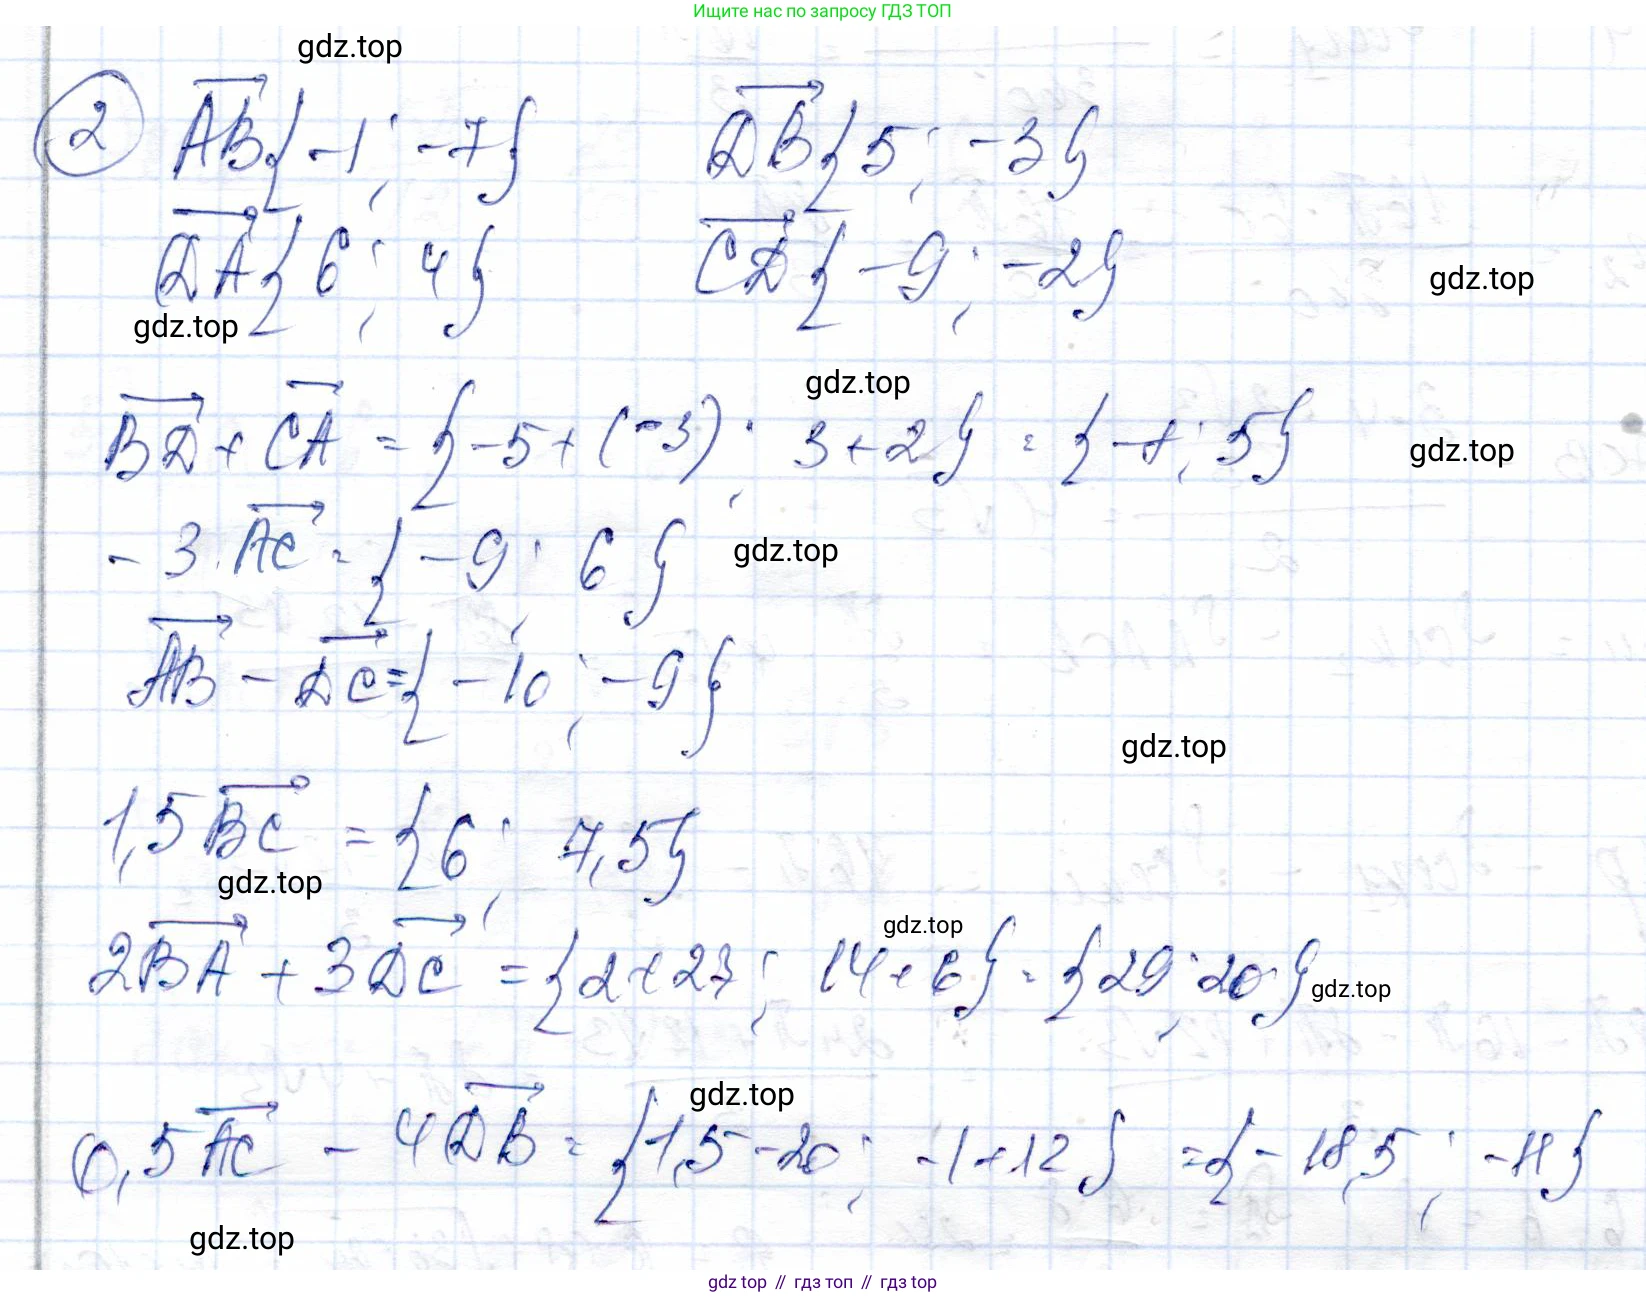 Ищите нас по запросу ГДЗ ТОП
gdz.top
2 AB{-1; -7} DB{5; -3}
DA{6; 4} CD{-9; -2}
gdz.top
gdz.top
gdz.top
BD + CA = {-5+(-3); 3+2} = {-8; 5}
gdz.top
-3·AC = {-9; 6}
gdz.top
AB - DC = {-10; -9}
gdz.top
1,5BC = {6; 7,5}
gdz.top
gdz.top
2BA + 3DC = {2+27; 14+6} = {29; 20}
gdz.top
gdz.top
0,5AC - 4DB = {1,5-20; -1+12} = {-18,5; -11}
gdz.top
gdz top // гдз топ // гдз top